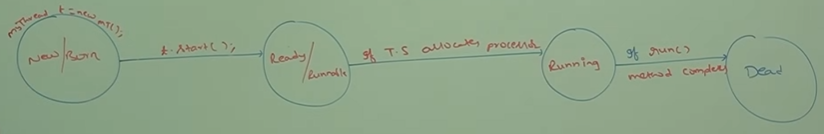 MyThread t = new MT();
New/Born
t.start();
Ready/
Runnable
If T.S allocates processor
Running
If run()
method completes
Dead